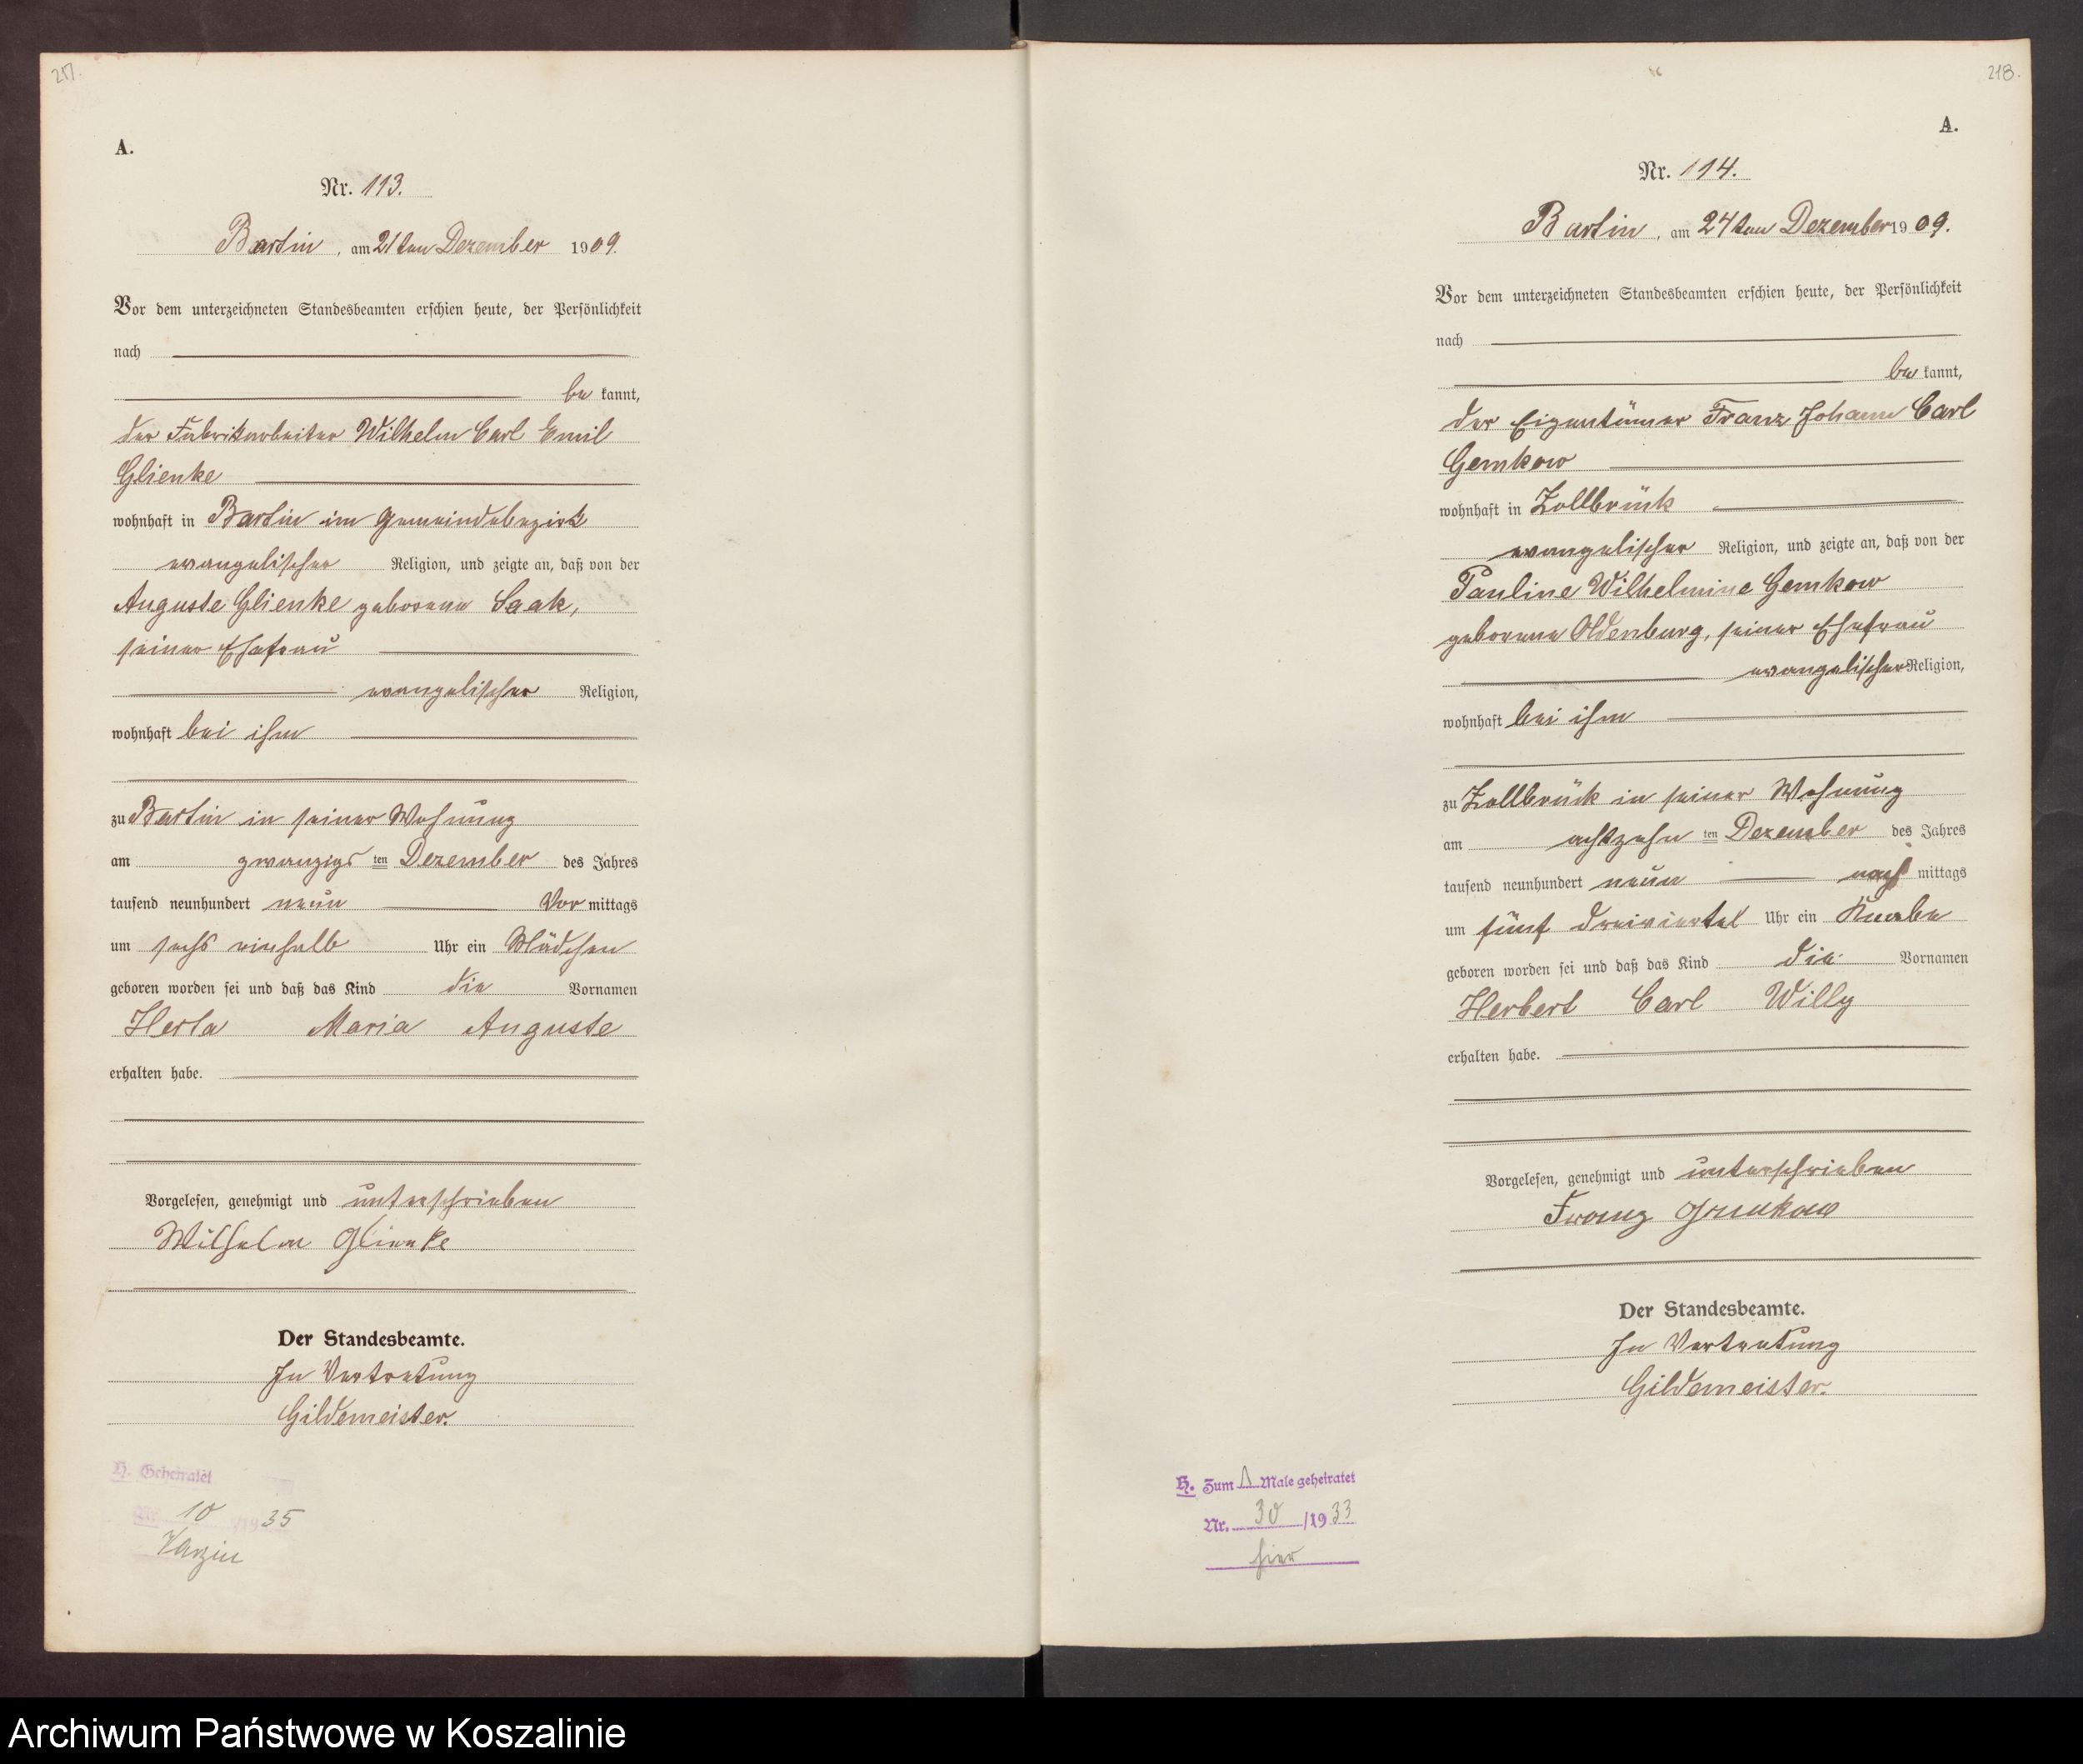 217.
A.
Nr. 113.
Bartin, am 21ten Dezember 1909.
Vor dem unterzeichneten Standesbeamten erschien heute, der Persönlichkeit
nach
be kannt,
der Fabrikarbeiter Wilhelm Carl Emil
Glienke
wohnhaft in Bartin im Gemeindebezirk
evangelischer Religion, und zeigte an, daß von der
Auguste Glienke geborene Saak,
seiner Ehefrau
evangelischer Religion,
wohnhaft bei ihm
zu Bartin in seiner Wohnung
am zwanzigsten Dezember des Jahres
tausend neunhundert neun Vormittags
um sechs einhalb Uhr ein Mädchen
geboren worden sei und daß das Kind die Vornamen
Herta Maria Auguste
erhalten habe.
Vorgelesen, genehmigt und unterschrieben
Wilhelm Glienke
Der Standesbeamte.
In Vertretung
Gildemeister.
H. Geheiratet
Nr. 10 /1935
Varzin
218.
A.
Nr. 114.
Bartin, am 24ten Dezember 1909.
Vor dem unterzeichneten Standesbeamten erschien heute, der Persönlichkeit
nach
be kannt,
der Eigentümer Franz Johann Carl
Gemkow
wohnhaft in Zollbrück
evangelischer Religion, und zeigte an, daß von der
Pauline Wilhelmine Gemkow
geborene Oldenburg, seiner Ehefrau
evangelischer Religion,
wohnhaft bei ihm
zu Zollbrück in seiner Wohnung
am achtzehnten Dezember des Jahres
tausend neunhundert neun nachmittags
um fünf dreiviertel Uhr ein Knabe
geboren worden sei und daß das Kind die Vornamen
Herbert Carl Willy
erhalten habe.
Vorgelesen, genehmigt und unterschrieben
Franz Gemkow
Der Standesbeamte.
In Vertretung
Gildemeister.
H. Zum 1. Male geheiratet
Nr. 30 /1933
hier
Archiwum Państwowe w Koszalinie